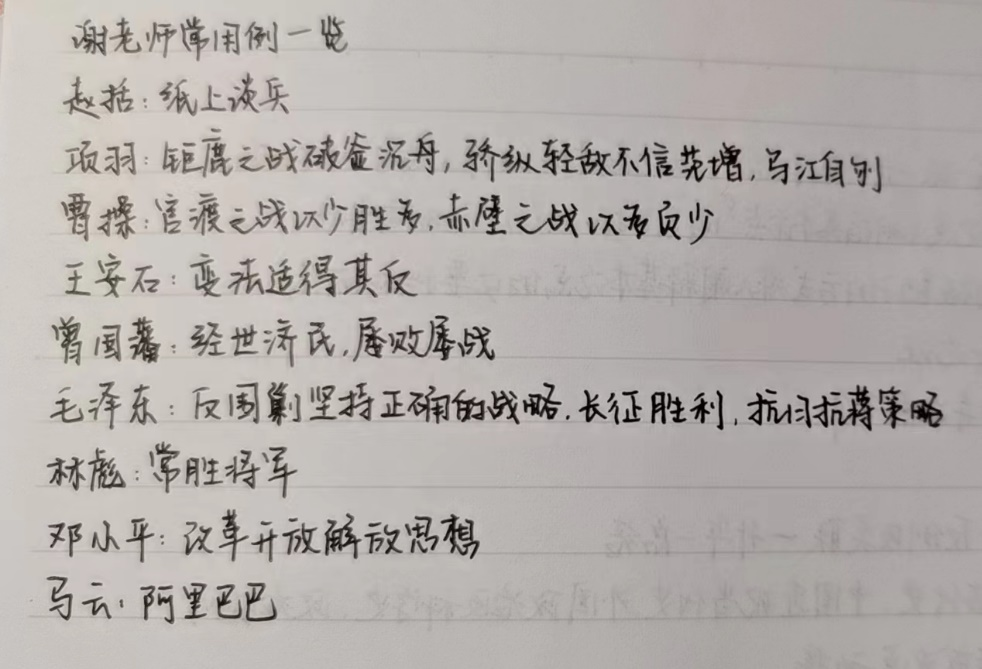 谢老师常用例一览
赵括:纸上谈兵
项羽:钜鹿之战破釜沉舟,骄纵轻敌不信范增,乌江自刎
曹操:官渡之战以少胜多,赤壁之战以多负少
王安石:变法适得其反
曾国藩:经世济民,屡败屡战
毛泽东:反围剿坚持正确的战略,长征胜利,抗日抗蒋策略
林彪:常胜将军
邓小平:改革开放解放思想
马云:阿里巴巴